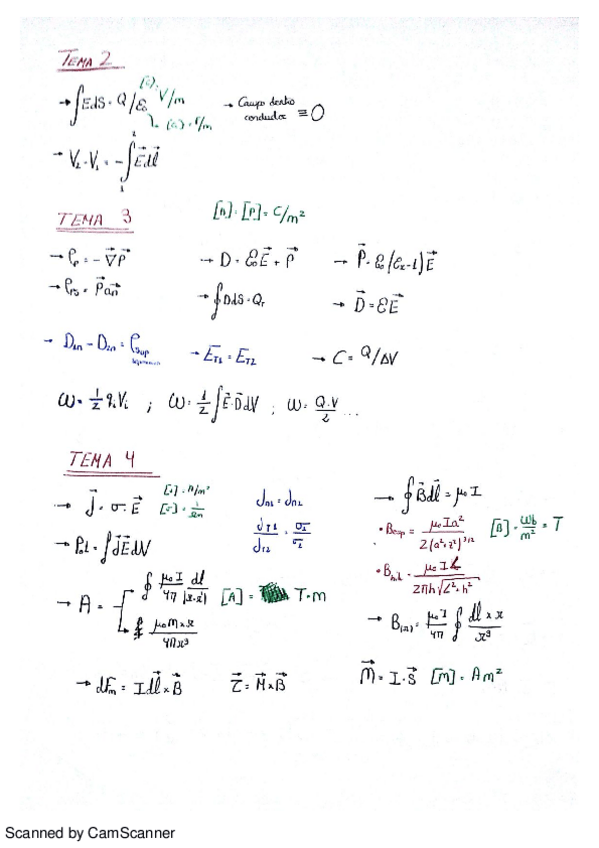 TEMA 2
→ ∫E.dS = Q/ε₀ [E]: V/m
↳ [ε₀]: F/m
→ Campo dentro conductor ≡ 0
→ V₂-V₁ = -∫₁² E⃗ dl⃗
TEMA 3
[D]=[P]= C/m²
→ ρp = -∇⃗P⃗
→ D = ε₀E⃗ + P⃗
→ P⃗ = ε₀(εr-1)E⃗
→ ρps = P⃗ an⃗
→ ∮DdS = Q_T
→ D⃗ = εE⃗
→ D₁n - D₂n = ρsup
→ E_T1 = E_T2
→ C = Q/ΔV
ω = 1/2 qᵢVᵢ ; ω = 1/2 ∫E⃗·D⃗dV ; ω = Q·V/2 ...
TEMA 4
→ J⃗ = σ·E⃗ [J] = A/m²
Jn1 = Jn2
→ ∮B⃗dl⃗ = μ₀I
JT1/JT2 = σ1/σ2
• Besp = μ₀Ia²/2(a²+z²)^3/2 [B] = Wb/m² = T
→ Pot = ∫J⃗E⃗dV
• Bhil = μ₀IL/2πh√L²+h²
→ A = ∮ μ₀I/4π dl⃗/|x-x'| [A] = T·m
↳ μ₀m×r/4πr³
→ B(r) = μ₀I/4π ∮ dl×r/r³
→ dFm = Idl⃗×B⃗
τ⃗ = M⃗×B⃗
M⃗ = I·S⃗ [M] = Am²
Scanned by CamScanner